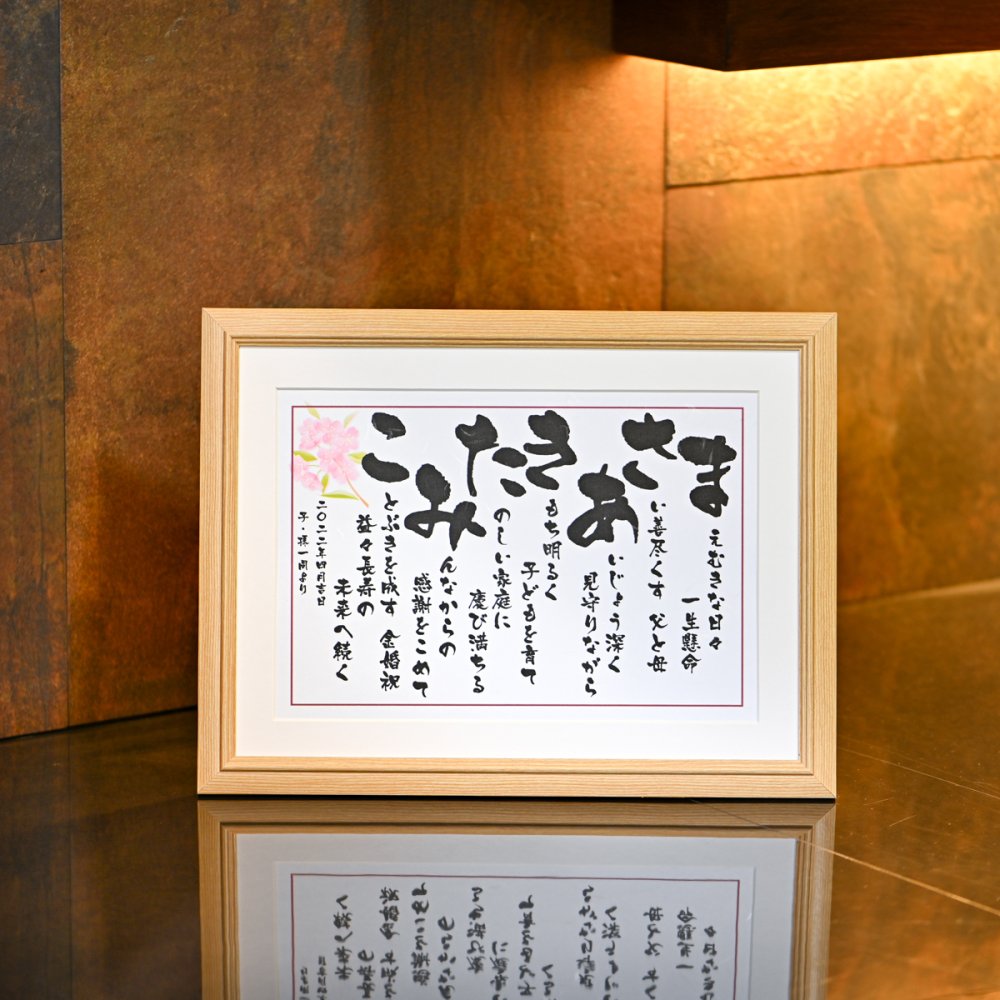 まえむきな日々
一生懸命
さい善尽くす 父と母
あいじょう深く
見守りながら
きもち明るく
子どもを育て
たのしい家庭に
慶び満ちる
みんなからの
感謝をこめて
ことぶきを成す 金婚祝
益々長寿の
未来へ続く
二〇二二年四月吉日
子・孫一同より